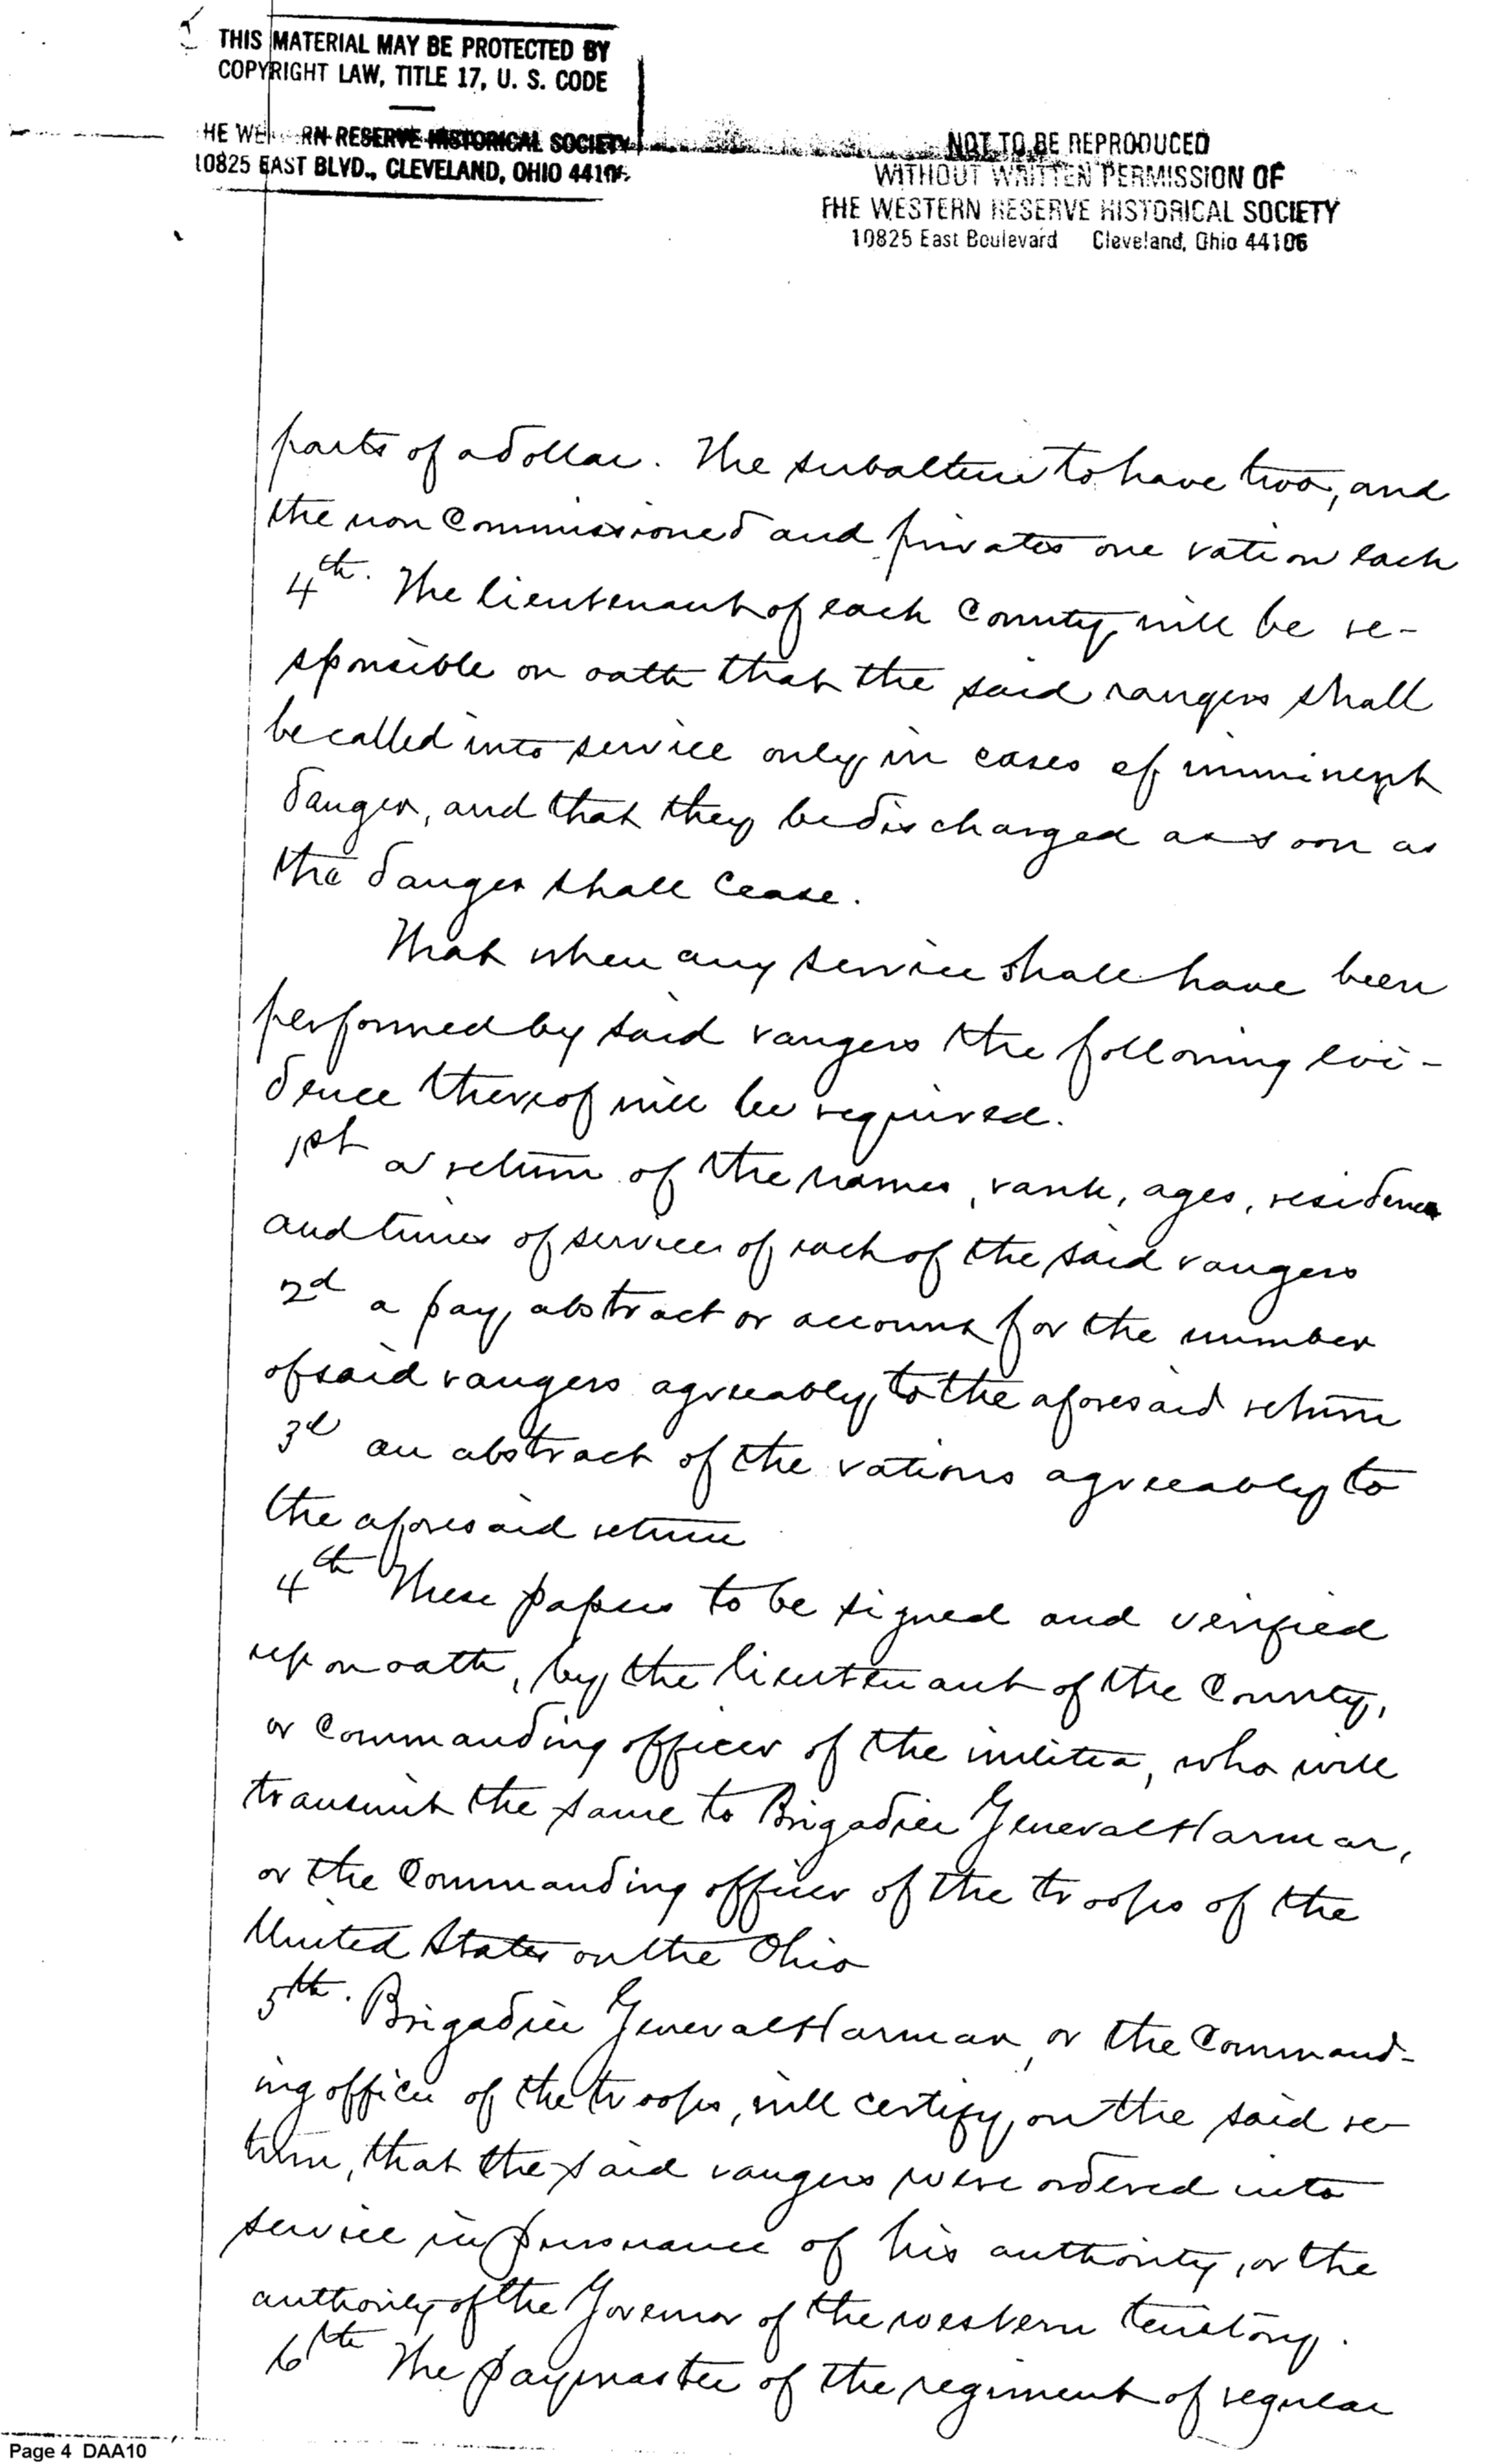 THIS MATERIAL MAY BE PROTECTED BY
COPYRIGHT LAW, TITLE 17, U. S. CODE
HE WE RN RESERVE HISTORICAL SOCIETY
10825 EAST BLVD., CLEVELAND, OHIO 44106
NOT TO BE REPRODUCED
WITHOUT WRITTEN PERMISSION OF
THE WESTERN RESERVE HISTORICAL SOCIETY
10825 East Boulevard Cleveland, Ohio 44106
parts of a dollar. The subaltern to have two, and
the non Commissioned and privates one ration each
4th. The lieutenant of each County will be re-
sponsible on oath that the said rangers shall
be called into service only in cases of imminent
danger, and that they be discharged as soon as
the danger shall cease.
That when any service shall have been
performed by said rangers the following evi-
dence thereof will be required.
1st a return of the names, rank, ages, residence
and times of service of each of the said rangers
2d a pay abstract or account for the number
of said rangers agreeably to the aforesaid return
3d an abstract of the rations agreeably to
the aforesaid return
4th These papers to be signed and verified
upon oath, by the lieutenant of the County,
or Commanding officer of the militia, who will
transmit the same to Brigadier General Harmar,
or the Commanding officer of the troops of the
United States on the Ohio
5th. Brigadier General Harmar, or the Command-
ing officer of the troops, will certify on the said re-
turn, that the said rangers were ordered into
service in pursuance of his authority, or the
authority of the Governor of the western territory.
6th The paymaster of the regiment of regular
Page 4 DAA10